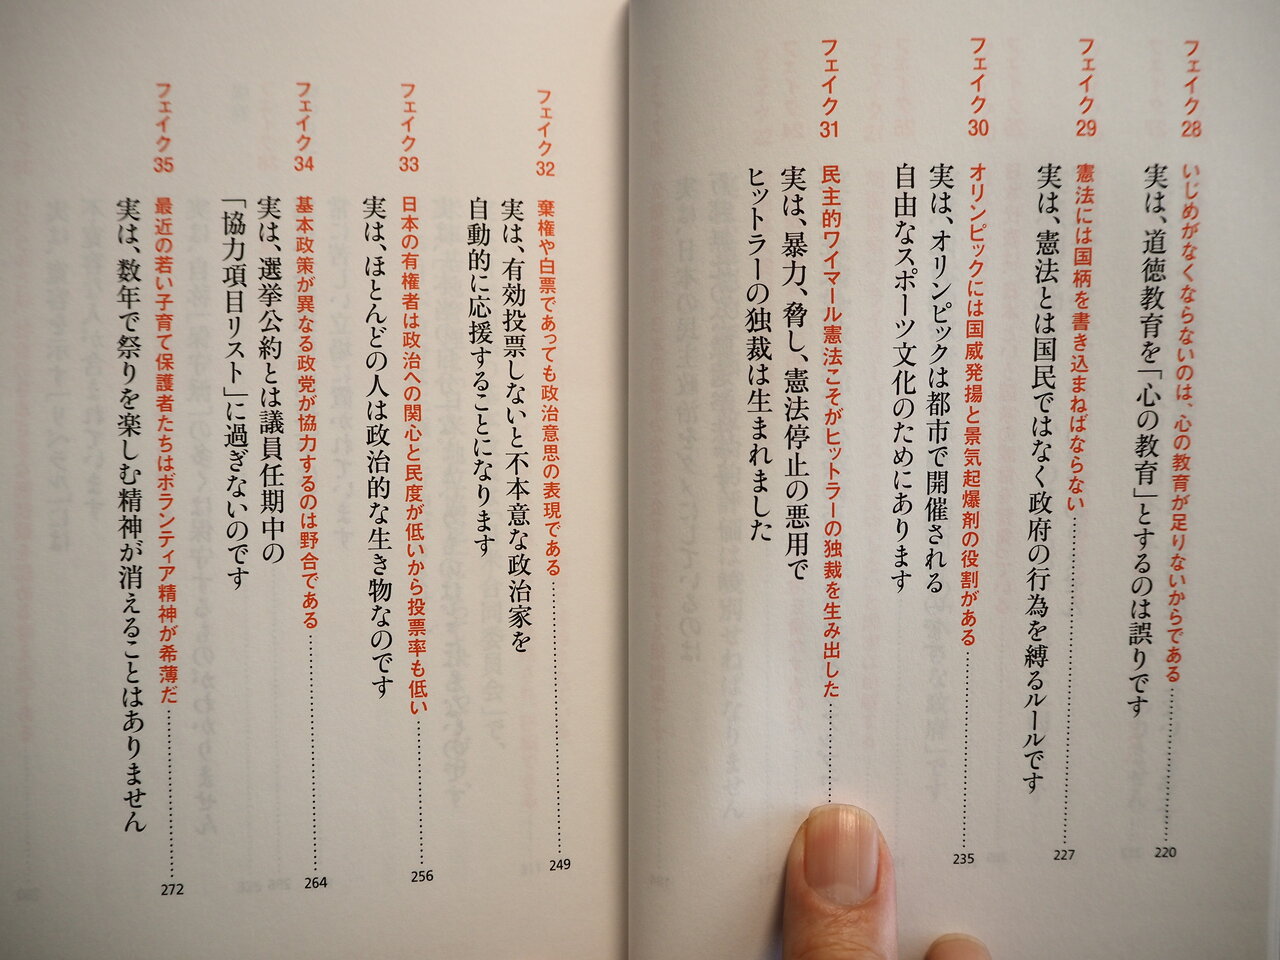 フェイク28 いじめがなくならないのは、心の教育が足りないからである 220
実は、道徳教育を「心の教育」とするのは誤りです
フェイク29 憲法には国柄を書き込まねばならない 227
実は、憲法とは国民ではなく政府の行為を縛るルールです
フェイク30 オリンピックには国威発揚と景気起爆剤の役割がある 235
実は、オリンピックは都市で開催される
自由なスポーツ文化のためにあります
フェイク31 民主的ワイマール憲法こそがヒットラーの独裁を生み出した
実は、暴力、脅し、憲法停止の悪用で
ヒットラーの独裁は生まれました
フェイク32 棄権や白票であっても政治意思の表現である 249
実は、有効投票しないと不本意な政治家を
自動的に応援することになります
フェイク33 日本の有権者は政治への関心と民度が低いから投票率も低い 256
実は、ほとんどの人は政治的な生き物なのです
フェイク34 基本政策が異なる政党が協力するのは野合である 264
実は、選挙公約とは議員任期中の
「協力項目リスト」に過ぎないのです
フェイク35 最近の若い子育て保護者たちはボランティア精神が希薄だ 272
実は、数年で祭りを楽しむ精神が消えることはありません